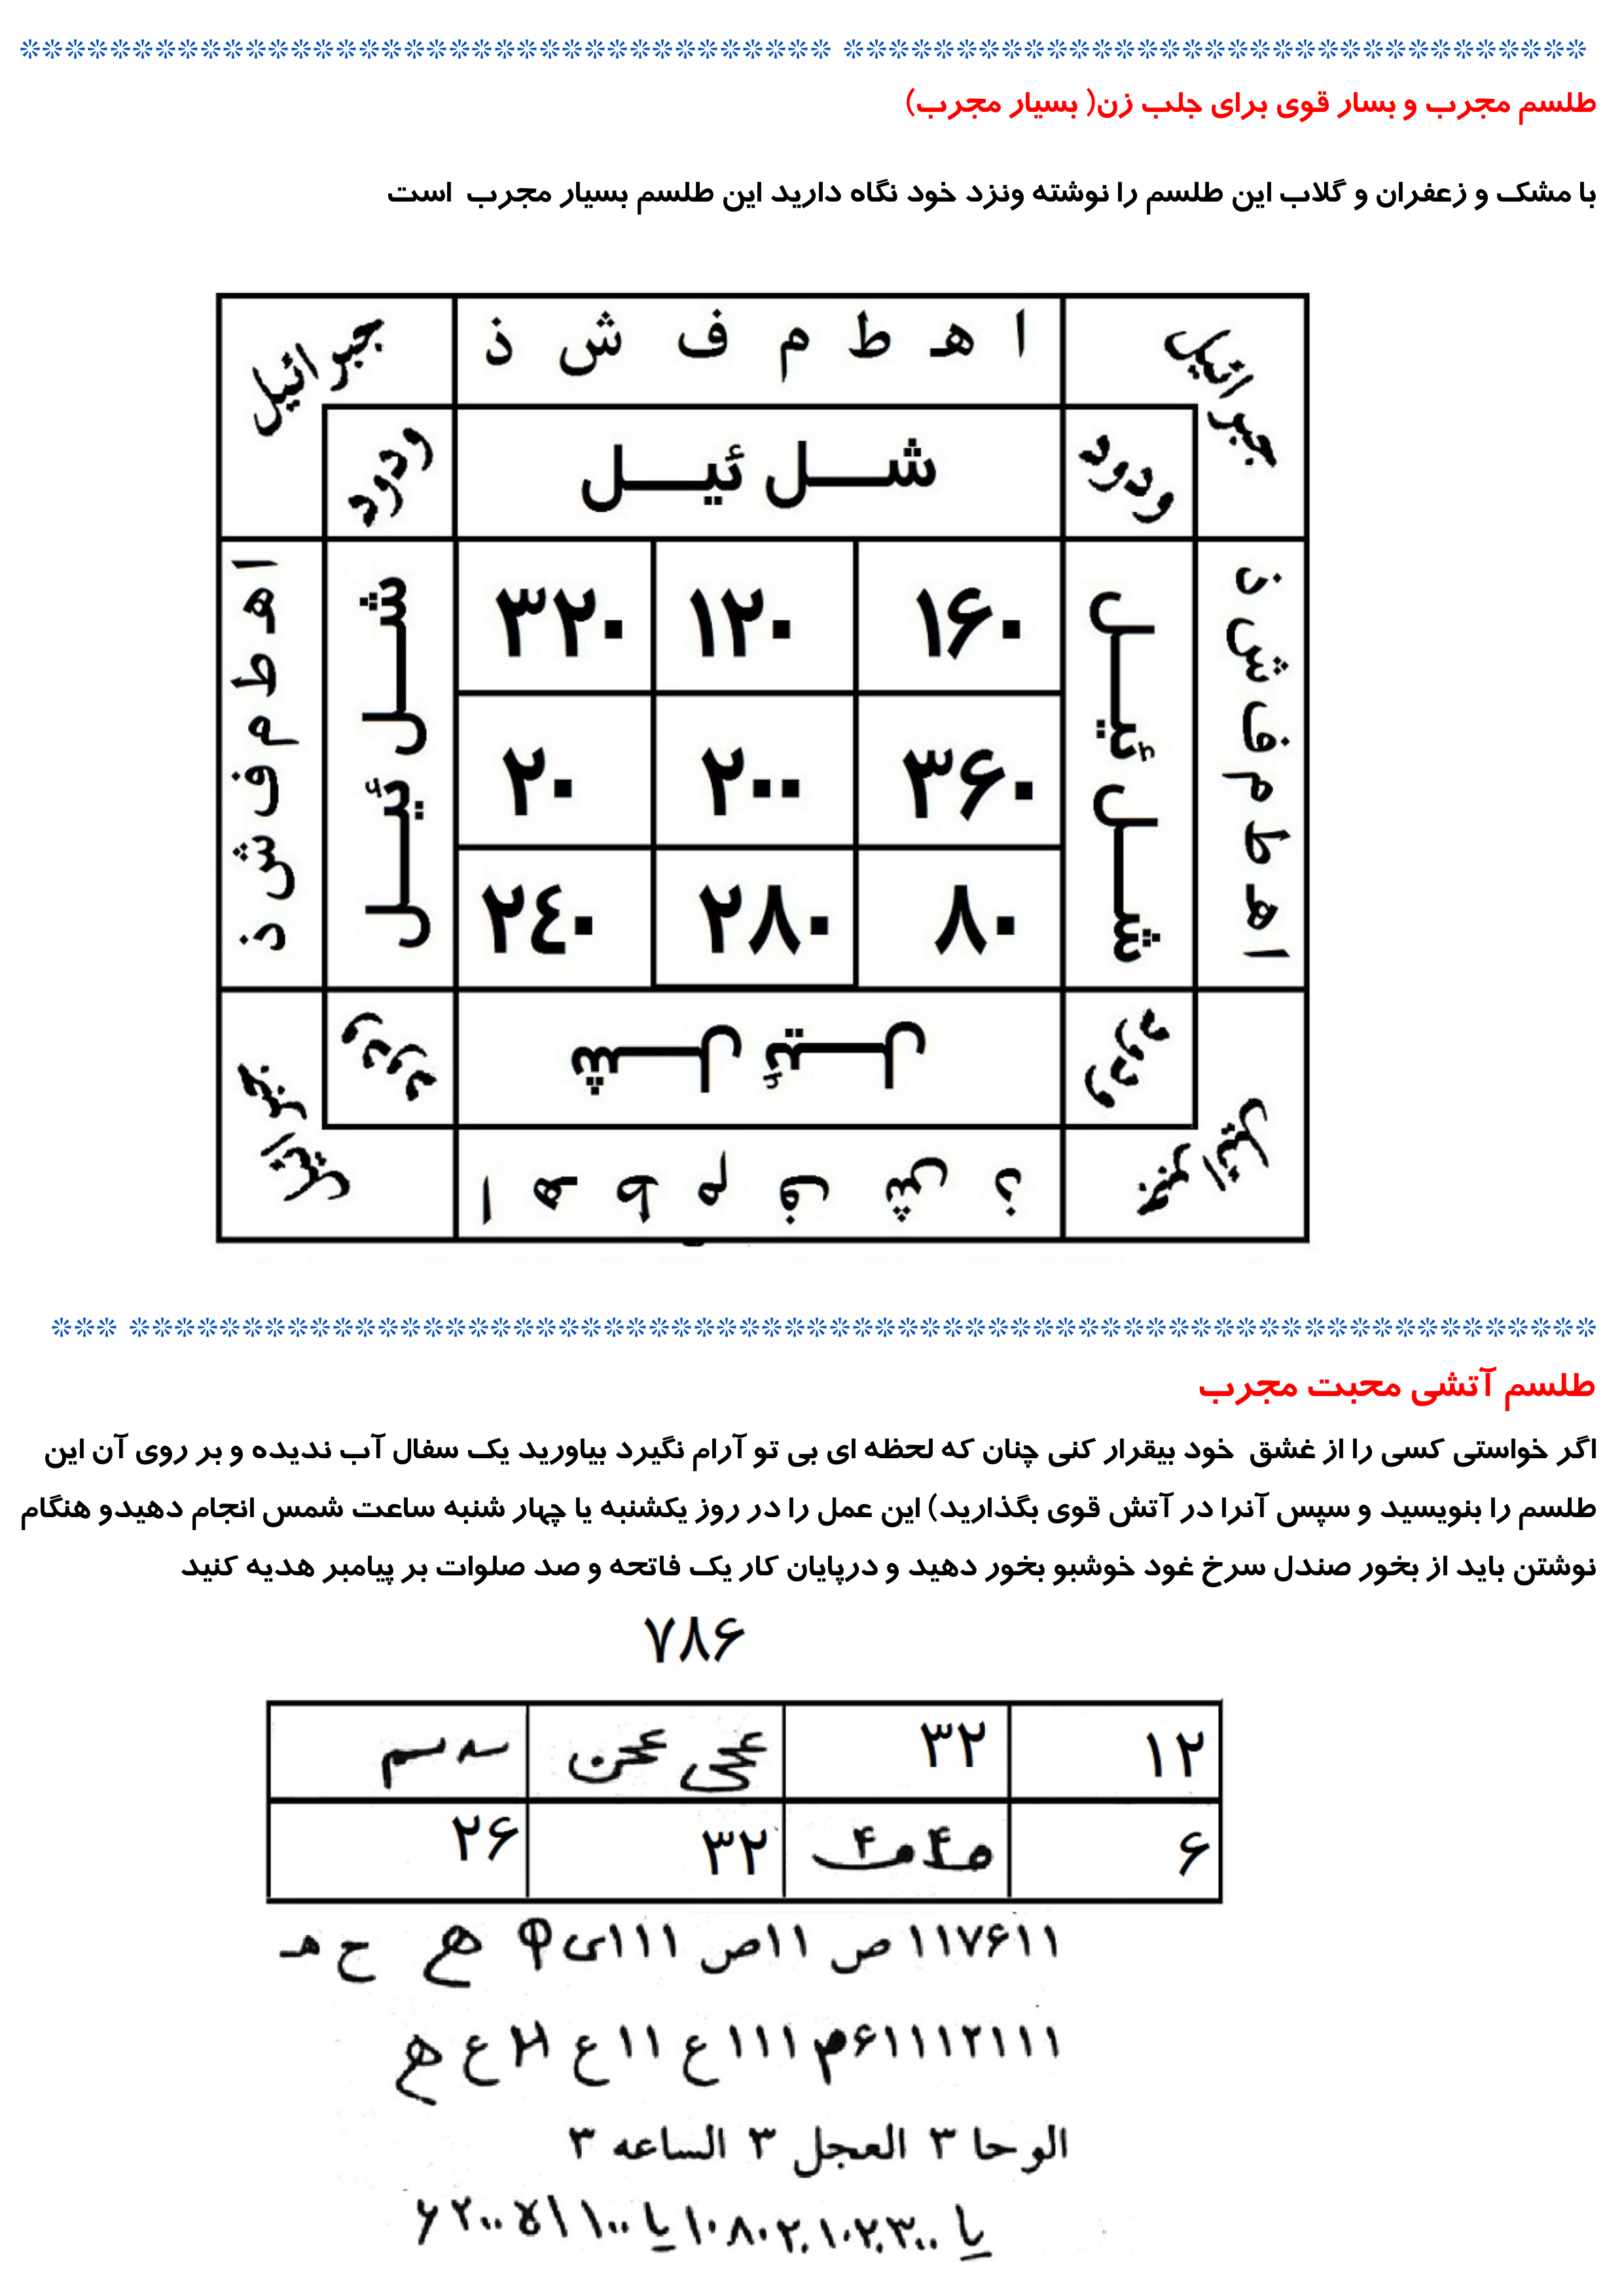 طلسم مجرب و بسار قوی برای جلب زن( بسیار مجرب)
با مشک و زعفران و گلاب این طلسم را نوشته ونزد خود نگاه دارید این طلسم بسیار مجرب است
جبرائیل ا هـ ط م ف ش ذ جبرائیل
ودود شل ئیل ودود
ا هـ ط م ف ش ذ شل ئیل ۱۶۰ ۱۲۰ ۳۲۰ شل ئیل ا هـ ط م ف ش ذ
۳۶۰ ۲۰۰ ۲۰
۸۰ ۲۸۰ ۲٤۰
ودود شل ئیل ودود
جبرائیل ا هـ ط م ف ش ذ جبرائیل
طلسم آتشی محبت مجرب
اگر خواستی کسی را از غشق خود بیقرار کنی چنان که لحظه ای بی تو آرام نگیرد بیاورید یک سفال آب ندیده و بر روی آن این
طلسم را بنویسید و سپس آنرا در آتش قوی بگذارید) این عمل را در روز یکشنبه یا چهار شنبه ساعت شمس انجام دهیدو هنگام
نوشتن باید از بخور صندل سرخ غود خوشبو بخور دهید و درپایان کار یک فاتحه و صد صلوات بر پیامبر هدیه کنید
۷۸۶
۱۲ ۳۲
۶ ۳۲ ۲۶
۱۱۷۶۱۱ ص ۱۱ص ۱۱۱ی ھ ح هـ
۶۱۱۱۲۱۱۱م ۱۱۱ ع ۱۱ ع ع ھ
الوحا ۳ العجل ۳ الساعه ۳
یا